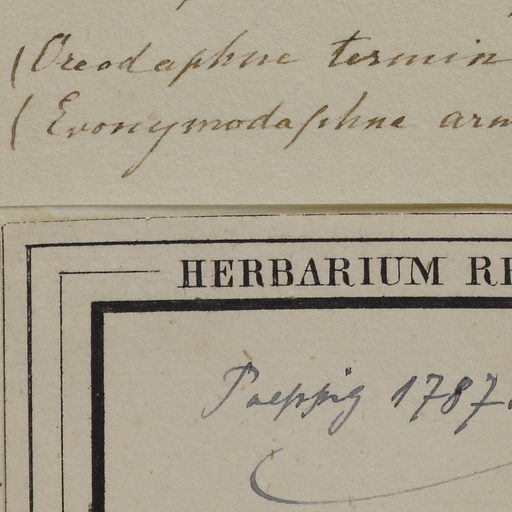 (Oreodaphne termin
(Evonymodaphne arm
HERBARIUM RE
Poeppig 1787.